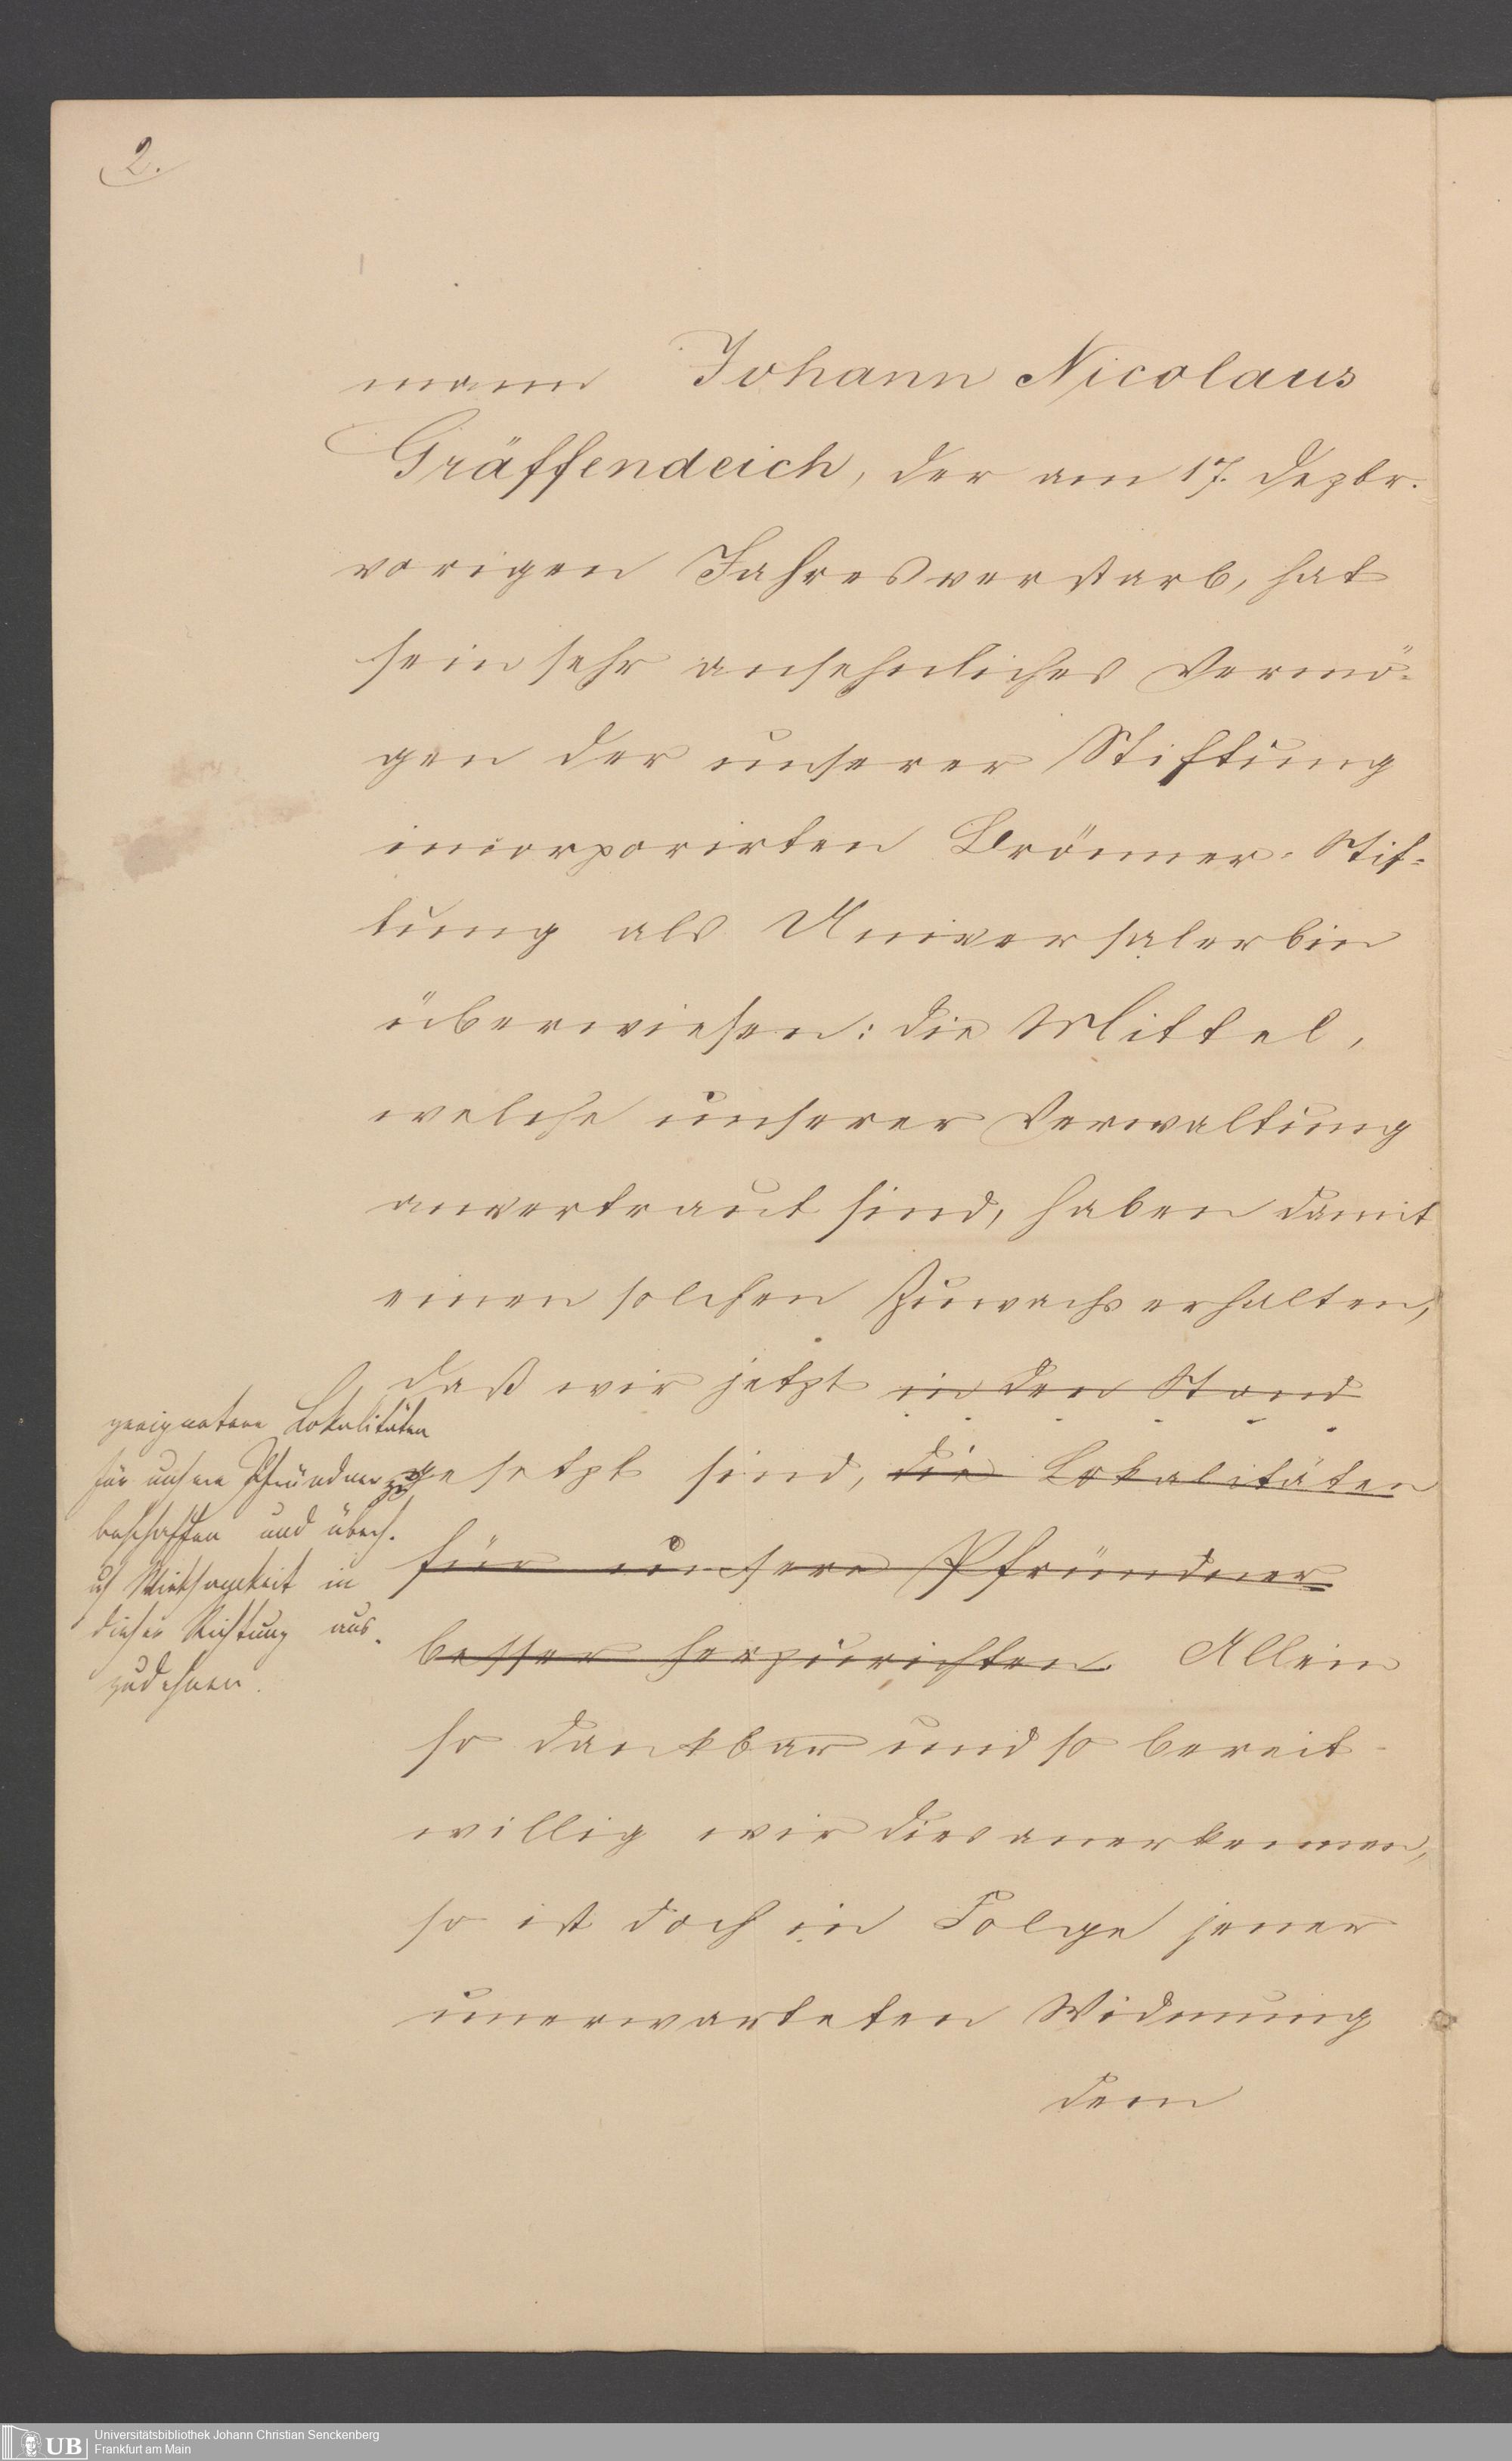 2.
mann Johann Nicolaus
Gräffendeich, der am 17. Dezbr.
vorigen Jahres verstarb, hat
sein sehr ansehnliches Vermö-
gen der unserer Stiftung
incorporirten Brönner-Stif-
tung als Universalerbin
überwiesen: die Mittel,
welche unserer Verwaltung
anvertraut sind, haben damit
einen solchen Zuwachs erhalten,
daß wir jetzt in den Stand
gesetzt sind, die Lokalitäten
für unsere Pfründner
besser herzurichten. Allein
so dankbar und so bereit-
willig wir dies anerkennen,
so ist doch in Folge jener
unerwarteten Widmung
dem
geeignetere Lokalitäten
für unsere Pfründner zu
beschaffen und
Wirksamkeit in
dieser Richtung aus-
zudehnen.
UB Universitätsbibliothek Johann Christian Senckenberg
Frankfurt am Main